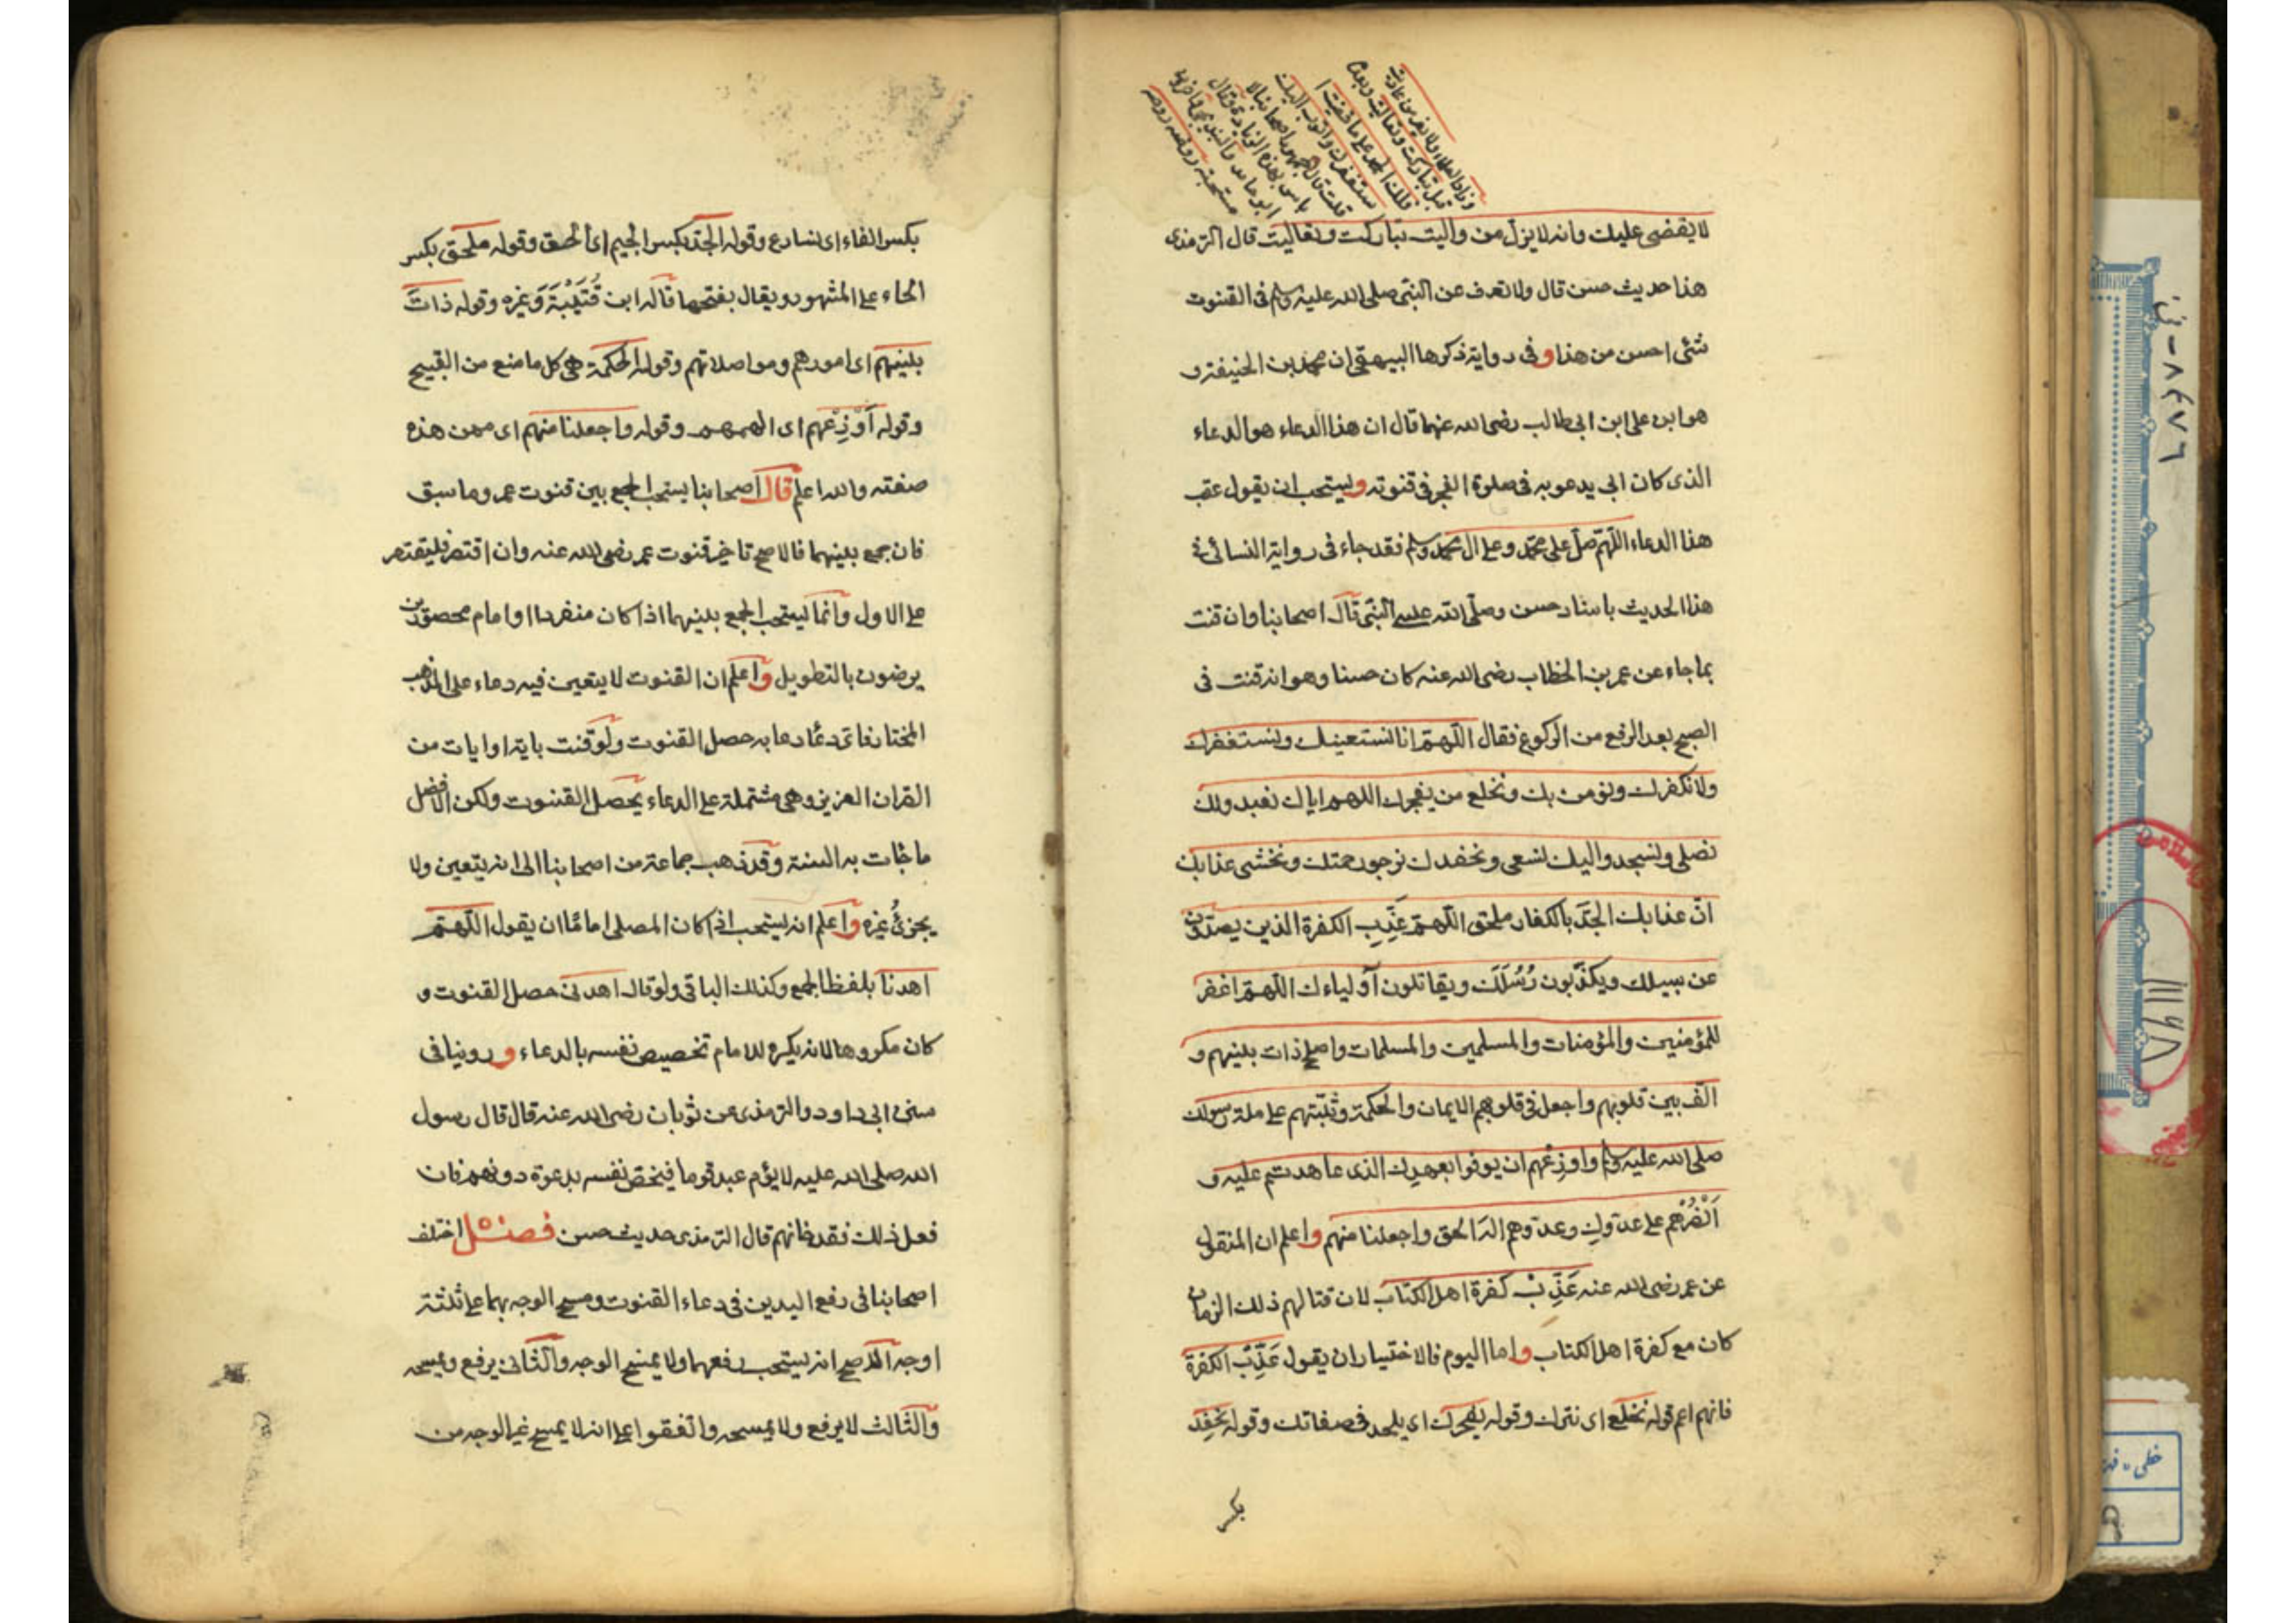 وزاد العلماء ولا يعز من عاديت
قبل تباركت وتعاليت وبعده
فلك الحمد على ما قضيت ا
ستغفرك واتوب اليك
قلت قال جمهور اصحابنا لا
باس بهذه الزيادة وقال
ابو حامد والبندنيجي واخرون
مستحبة روضه
لا يقضى عليك وانه لا يزل من واليت تباركت وتعاليت قال الترمذى
هذا حديث حسن قال ولا نعرف عن النبى صلى الله عليه وسلم فى القنوت
شئى احسن من هذا وفى رواية ذكرها البيهقى ان محمد بن الحنيفة و
هو ابن على ابن ابى طالب رضى الله عنهما قال ان هذا الدعاء هو الدعاء
الذى كان ابى يدعو به فى صلوة الفجر فى قنوته ويستحب ان يقول عقب
هذا الدعاء اللّهمّ صلّ على محمّد وعلى ال محمد وسلم فقد جاء فى رواية النسائى فى
هذا الحديث باسناد حسن وصلّى اللّه على النّبى قال اصحابنا وان قنت
بما جاء عن عمر بن الخطاب رضى الله عنه كان حسنا وهو انه قنت فى
الصبح بعد الرفع من الركوع فقال اللّهمّ انا نستعينك ونستغفرك
ولا نكفرك ونؤمن بك ونخلع من يفجرك اللهم اياك نعبد ولك
نصلى ونسجد واليك نسعى ونحفد نرجو رحمتك ونخشى عذابك
انّ عذابك الجدّ بالكفار ملحق اللّهمّ عَذِّبِ الكفرة الذين يصدّون
عن سبيلك ويكذّبون رُسُلَكَ ويقاتلون اَولياءك اللّهمّ اغفر
للمؤمنين والمؤمنات والمسلمين والمسلمات واصلح ذات بينهم و
الّف بين قلوبهم واجعل فى قلوبهم الايمان والحكمة وثبّتهم على ملة رسولك
صلى الله عليه وسلم واوزعهم ان يوفوا بعهدك الذى عاهدتهم عليه و
اَنْصُرْهم على عدوّك وعدوّهم اله الحق واجعلنا منهم واعلم ان المنقول
عن عمر رضى الله عنه عَذِّبْ كفرة اهل الكتاب لان قتالهم ذلك الزمان
كان مع كفرة اهل الكتاب واما اليوم فالاختيار ان يقول عَذِّبْ الكفرة
فانهم اعم قوله نخلع اى نترك وقوله يفجرك اى يلحد فى صفاتك وقوله نحفِد
بكسر
بكسر الفاء اى نسارع وقوله الجدّ بكسر الجيم اى الحق وقوله ملحق بكسر
الحاء على المشهور ويقال بفتحها قاله ابن قُتَيْبَة وَغيره وقوله ذاتَ
بينهم اى امورهم ومواصلاتهم وقوله الحكمة هى كل ما منع من القبيح
وقوله اَوْزِعْهم اى الهمهم وقوله واجعلنا منهم اى ممن هذه
صفته والله اعلم قال اصحابنا يستحب الجمع بين قنوت عمر وما سبق
فان جمع بينهما فالاصح تاخير قنوت عمر رضى الله عنه وان اقتصر فليقتصر
على الاول وانّما يستحب الجمع بينهما اذا كان منفردا او امام محصورين
يرضون بالتطويل واعلم ان القنوت لا يتعين فيه دعاء على المذهب
المختار فاى دعاً دعا به حصل القنوت ولو قنت باية او ايات من
القران العزيز وهى مشتملة على الدعاء يحصل القنوت ولكن الافضل
ما جٰات به السنة وقد ذهب جماعة من اصحابنا الى انه يتعين ولا
يجزئ غيره واعلم انه يستحب اذا كان المصلى امامًا ان يقول اللّهمّ
اهدنا بلفظ الجمع وكذلك الباقى ولو قال اهدنى حصل القنوت و
كان مكروها لانه يكره للامام تخصيص نفسه بالدعاء وروينا فى
سنن ابى داود والترمذى عن ثوبان رضى الله عنه قال قال رسول
الله صلى الله عليه لا يؤم عبد قوما فيخصّ نفسه بدعوة دونهم فان
فعل ذلك فقد خانهم قال الترمذى حديث حسن فصل اختلف
اصحابنا فى رفع اليدين فى دعاء القنوت ومسح الوجه بهما على ثلثة
اوجه الاصح انه يستحب رفعهما ولا يمسح الوجه والثّانى يرفع ويمسحه
والثّالث لا يرفع ولا يمسحه واتّفقوا على انه لا يمسح غير الوجه من
١١١٩٨